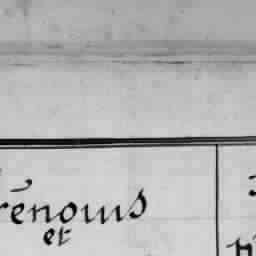 rénoms
et